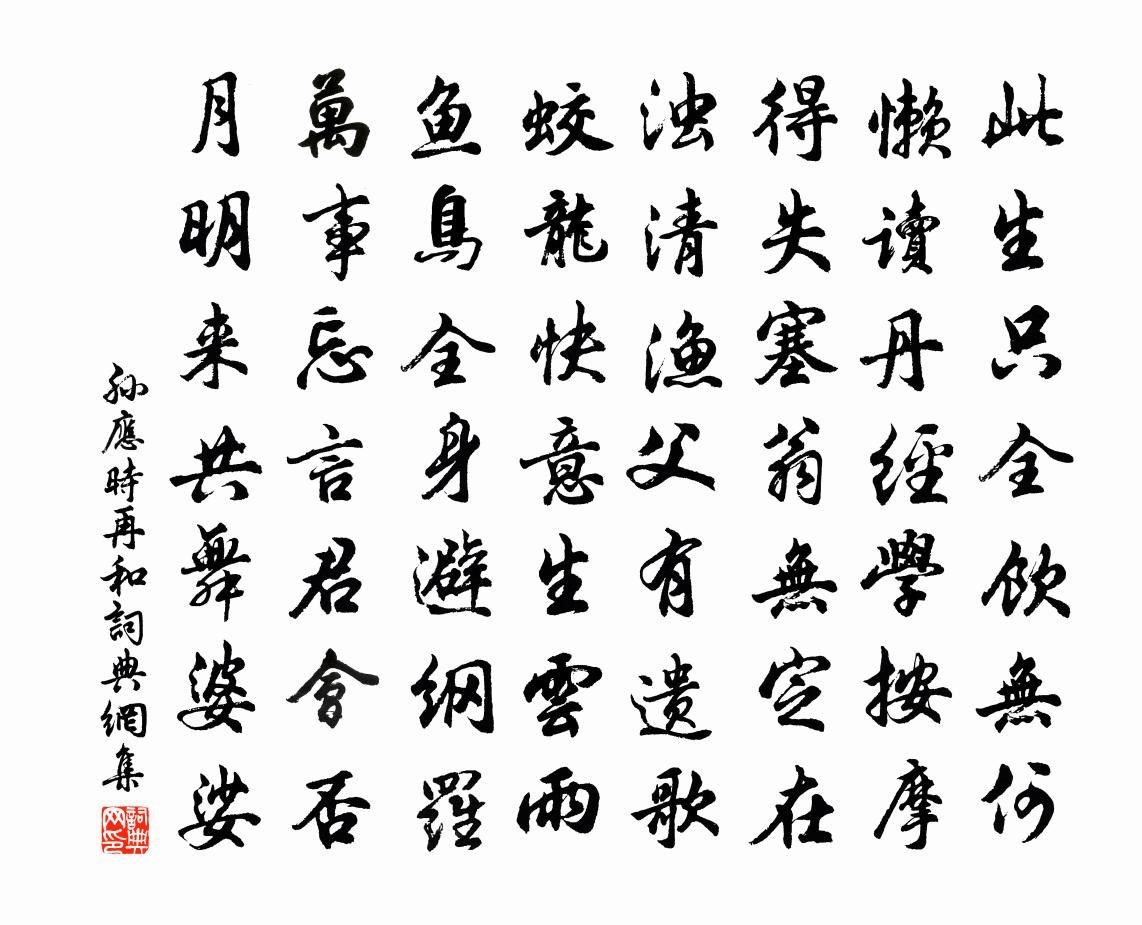 此生只全飲無何
懶讀丹經學按摩
得失塞翁無定在
浊清漁父有遺歌
蛟龍快意生雲雨
鱼鳥全身避網羅
萬事忘言君會否
月明来共舞婆娑
孫應時再和詞典網集
詞典网印